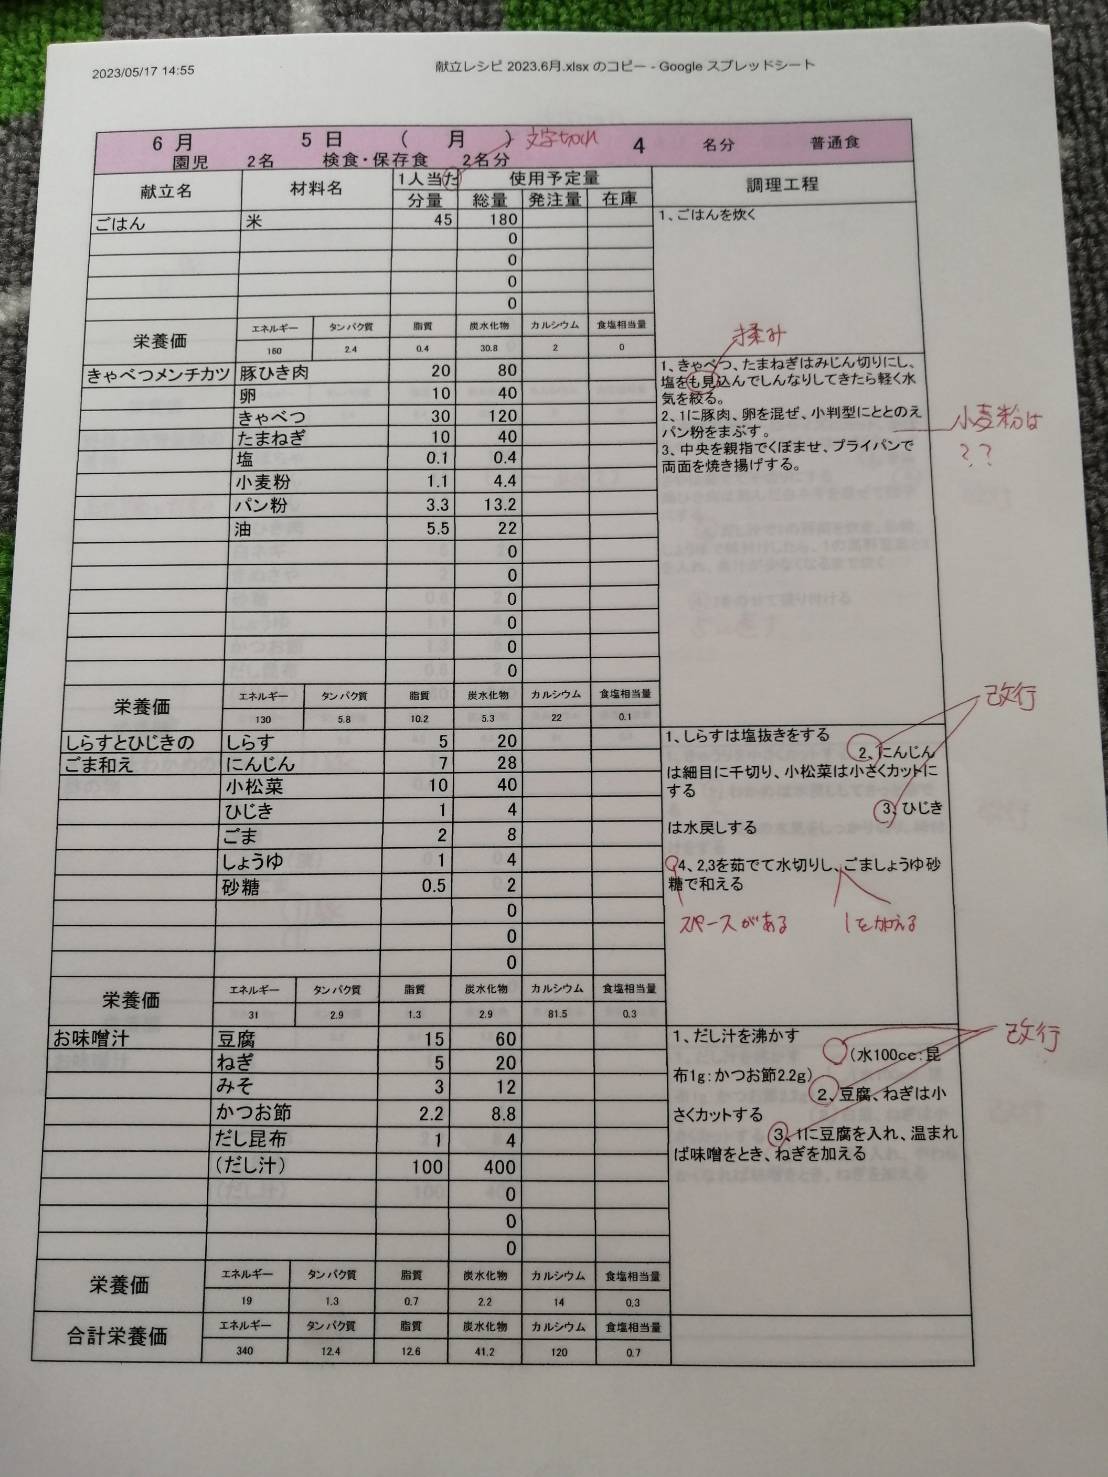 2023/05/17 14:55
献立レシピ 2023.6月.xlsx のコピー - Google スプレッドシート
6 月 5 日 ( 月 ) 4 名分 普通食
文字切れ
園児 2名 検食・保存食 2名分
献立名 材料名 1人当た 使用予定量 調理工程
分量 総量 発注量 在庫
ごはん 米 45 180 1、ごはんを炊く
0
0
0
0
栄養価 エネルギー タンパク質 脂質 炭水化物 カルシウム 食塩相当量
160 2.4 0.4 30.8 2 0
揉み
きゃべつメンチカツ 豚ひき肉 20 80
卵 10 40
きゃべつ 30 120
たまねぎ 10 40
塩 0.1 0.4
小麦粉 1.1 4.4
パン粉 3.3 13.2
油 5.5 22
0
0
0
0
0
0
1、きゃべつ、たまねぎはみじん切りにし、
塩をも見込んでしんなりしてきたら軽く水
気を絞る。
2、1に豚肉、卵を混ぜ、小判型にととのえ
パン粉をまぶす。
3、中央を親指でくぼませ、プライパンで
両面を焼き揚げする。
小麦粉は
??
栄養価 エネルギー タンパク質 脂質 炭水化物 カルシウム 食塩相当量
130 5.8 10.2 5.3 22 0.1
改行
しらすとひじきの しらす 5 20
ごま和え にんじん 7 28
小松菜 10 40
ひじき 1 4
ごま 2 8
しょうゆ 1 4
砂糖 0.5 2
0
0
0
1、しらすは塩抜きをする
2、にんじん
は細目に千切り、小松菜は小さくカットに
する
3、ひじき
は水戻しする
4、2,3を茹でて水切りし、ごましょうゆ砂
糖で和える
スペースがある
1を加える
栄養価 エネルギー タンパク質 脂質 炭水化物 カルシウム 食塩相当量
31 2.9 1.3 2.9 81.5 0.3
お味噌汁 豆腐 15 60
ねぎ 5 20
みそ 3 12
かつお節 2.2 8.8
だし昆布 1 4
(だし汁) 100 400
0
0
0
1、だし汁を沸かす
(水100cc:昆
布1g:かつお節2.2g)
2、豆腐、ねぎは小
さくカットする
3、1に豆腐を入れ、温まれ
ば味噌をとき、ねぎを加える
改行
栄養価 エネルギー タンパク質 脂質 炭水化物 カルシウム 食塩相当量
19 1.3 0.7 2.2 14 0.3
合計栄養価 エネルギー タンパク質 脂質 炭水化物 カルシウム 食塩相当量
340 12.4 12.6 41.2 120 0.7